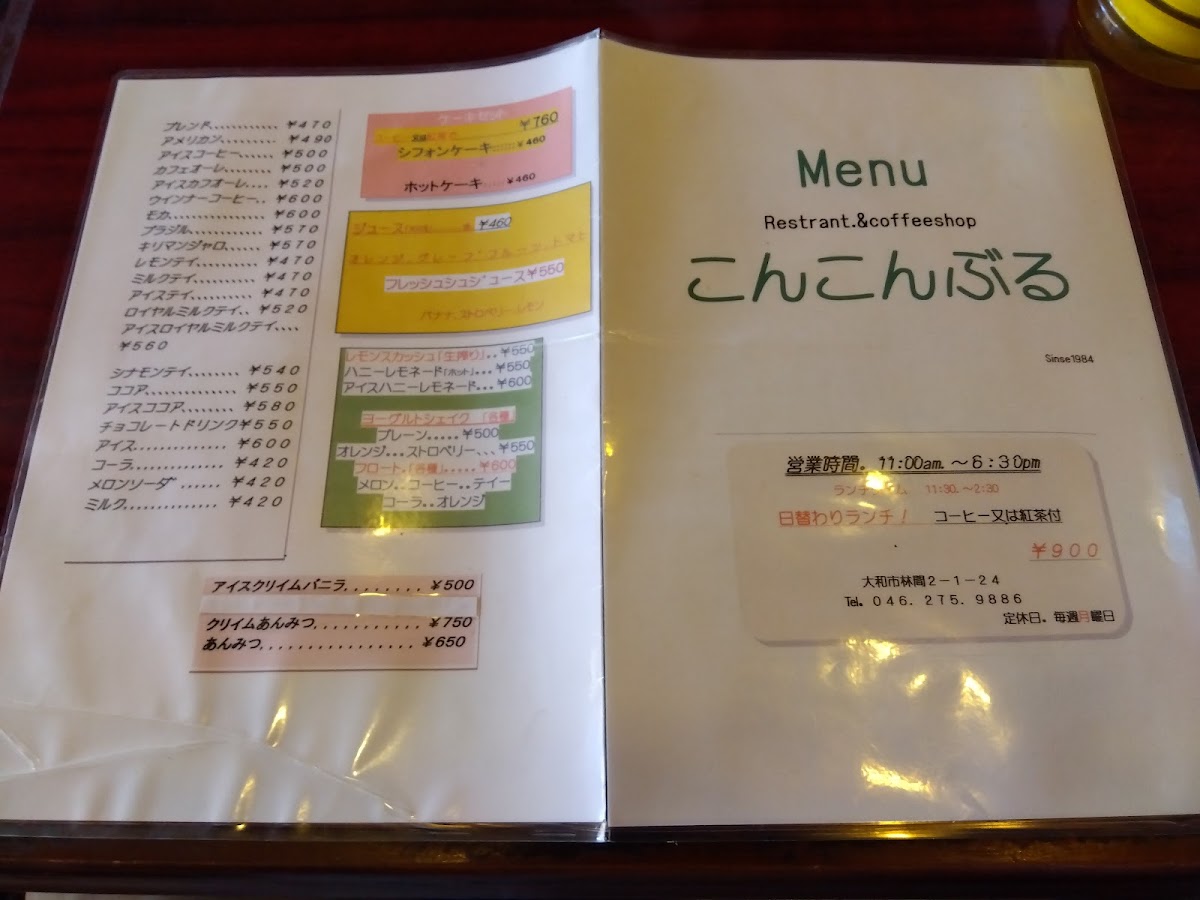 ブレンド............ ￥470
アメリカン......... ￥490
アイスコーヒー...... ￥500
カフェオーレ........ ￥500
アイスカフオーレ.... ￥520
ウインナーコーヒー.. ￥600
モカ............... ￥600
ブラジル........... ￥570
キリマンジャロ...... ￥570
レモンテイ.......... ￥470
ミルクテイ.......... ￥470
アイステイ.......... ￥470
ロイヤルミルクテイ.. ￥520
アイスロイヤルミルクテイ....
￥560
シナモンテイ........ ￥540
ココア............. ￥550
アイスココア........ ￥580
チョコレートドリンク￥550
アイス............. ￥600
コーラ............. ￥420
メロンソーダ ...... ￥420
ミルク.............. ￥420
ケーキセット
￥760
シフォンケーキ......￥460
ホットケーキ......￥460
ジュース ￥460
オレンジ、グレープフルーツ、トマト
フレッシュシュジュース￥550
バナナ、ストロベリー、レモン
レモンスカッシュ「生搾り」..￥550
ハニーレモネード「ホット」...￥550
アイスハニーレモネード...￥600
ヨーグルトシェイク 「各種」
プレーン.....￥500
オレンジ...ストロベリー、、、￥550
フロート.「各種」.....￥600
メロン..コーヒー..テイー
コーラ..オレンジ
アイスクリイムバニラ......... ￥500
クリイムあんみつ............ ￥750
あんみつ................. ￥650
Menu
Restrant.&coffeeshop
こんこんぶる
Sinse1984
営業時間. 11:00am.～6:30pm
ランチタイム 11:30.～2:30
日替わりランチ！ コーヒー又は紅茶付
￥900
大和市林間2－1－24
Tel. 046. 275. 9886
定休日. 毎週月曜日